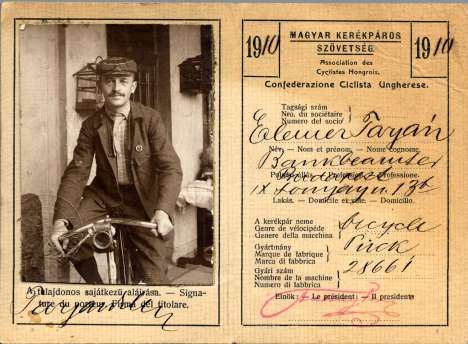 A tulajdonos sajátkezű aláirása. — Signa-
ture du porteur. Firma del titolare.
1910
MAGYAR KERÉKPÁROS
SZÖVETSÉG
1910
Association des
Cyclistes Hongrois.
Confederazione Ciclista Ungherese.
Tagsági szám
Nro. du sociétaire
Numero del socio
Elemér Tarján
Név. — Nom et prénom. — Nome cognome.
Bankbeamter
Profession. — Professione.
IX 13b
Lakás. — Domicile et ville. — Domicilio.
A kerékpár neme
Genre de vélocipéde
Genere della macchina
bicycle
Gyártmány
Marque de fabrique
Marca di fabbrica
Gyári szám
Nombre de la machine
Numero di fabbrica
28661
Elnök: — Le président: — Il presidente